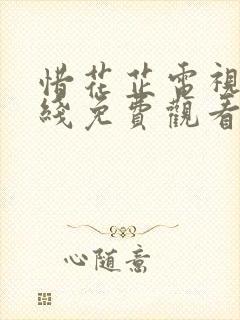 惜花芷電視
綫免費觀看
心随意